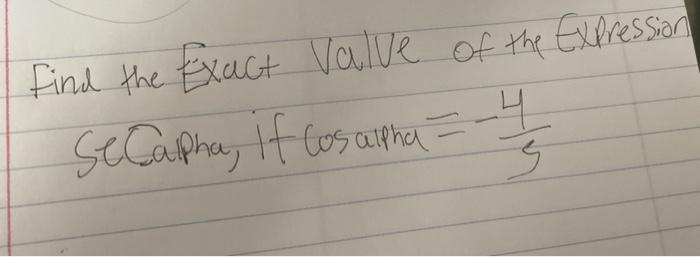 Find the Exact Value of the Expression
Sec alpha, if Cos alpha = -4/5